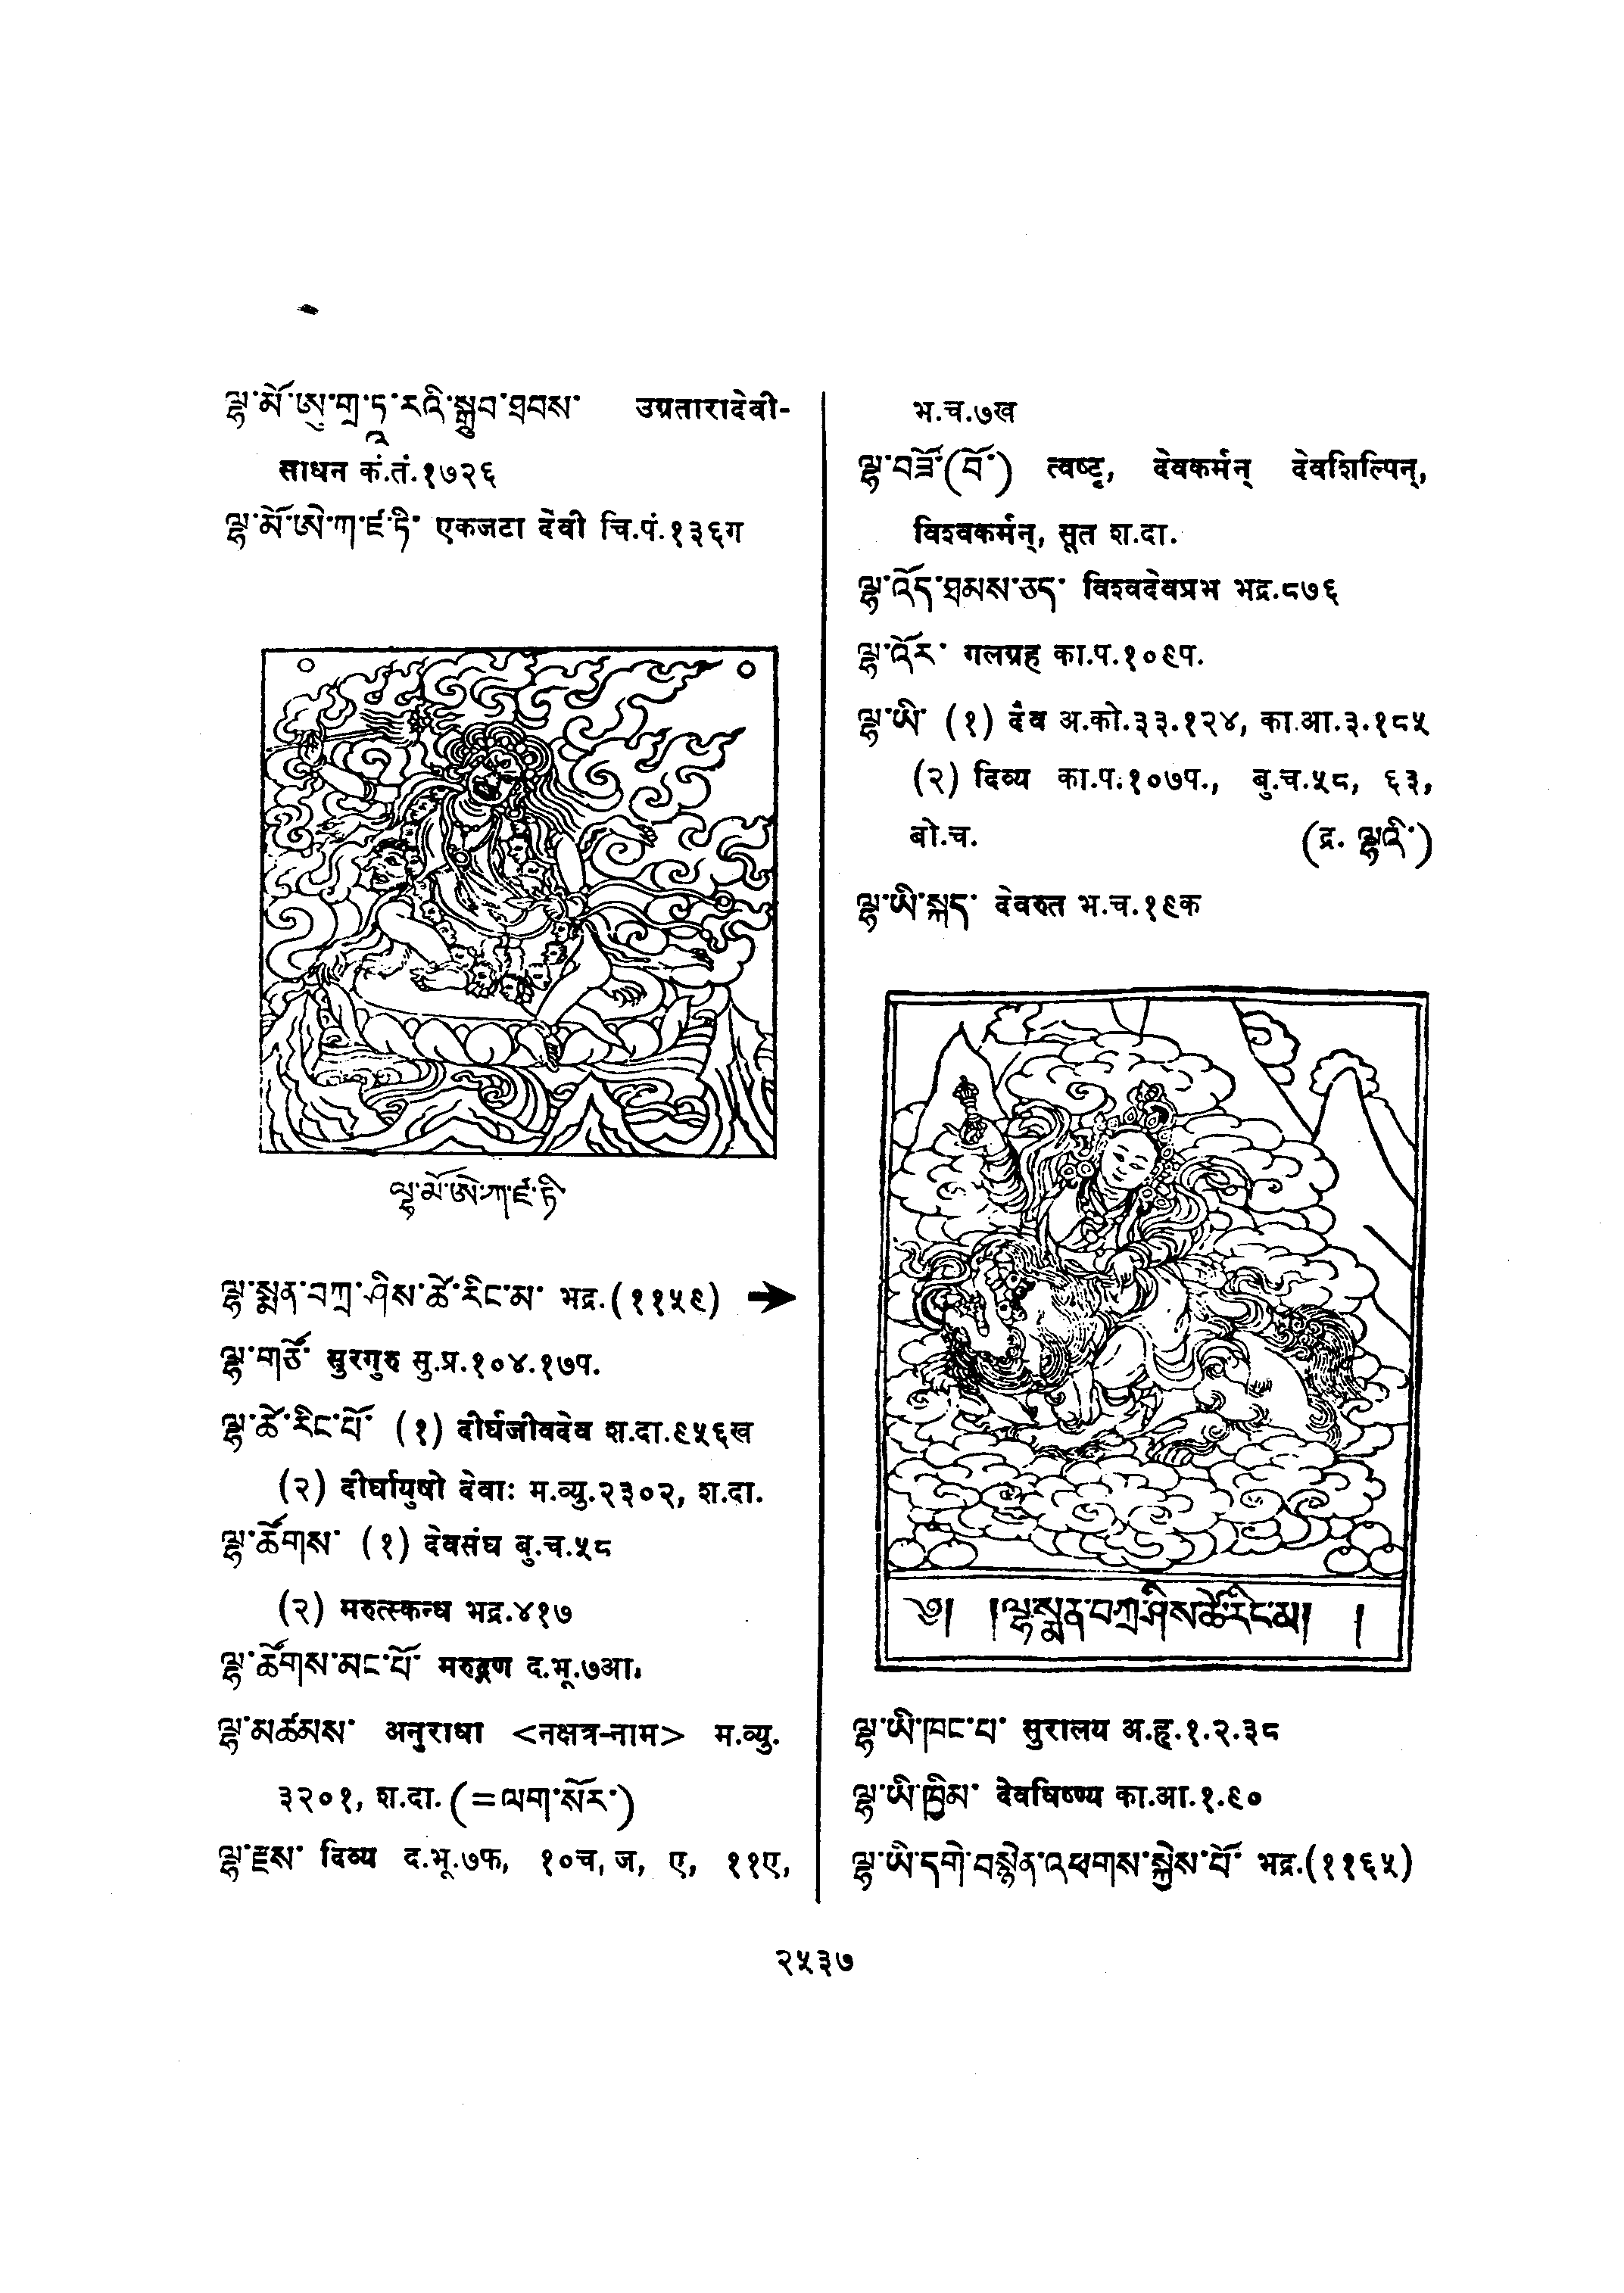 ལྷ་མོ་ཨུ་གྲ་ཏཱ་རའི་སྒྲུབ་ཐབས་ उग्रतारादेवी-
साधन कं.तं.१७२६
ལྷ་མོ་ཨེ་ཀ་ཛ་ཏི་ एकजटा देवी चि.पं.१३६ग
ལྷ་མོ་ཨེ་ཀ་ཛ་ཏི་
ལྷ་སྨན་བཀྲ་ཤིས་ཚེ་རིང་མ་ भद्र.(११५९) ➔
ལྷ་གཙོ་ सुरगुरु सु.प्र.१०४.१७प.
ལྷ་ཚེ་རིང་པོ་ (१) दीर्घजीवदेव श.दा.९५६ख
(२) दीर्घायुषो देवाः म.व्यु.२३०२, श.दा.
ལྷ་ཚོགས་ (१) देवसंघ बु.च.५८
(२) मरुत्स्कन्ध भद्र.४१७
ལྷ་ཚོགས་མང་པོ་ मरुद्गण द.भू.७आ.
ལྷ་མཚམས་ अनुराधा <नक्षत्र-नाम> म.व्यु.
३२०१, श.दा. (=ལག་སོར་)
ལྷ་རྫས་ दिव्य द.भू.७फ, १०च, ज, ए, ११ए,
भ.च.७ख
ལྷ་བཟོ་(བོ་) त्वष्टृ, देवकर्मन् देवशिल्पिन्,
विश्वकर्मन्, सूत श.दा.
ལྷ་འོད་ཐམས་ཅད་ विश्वदेवप्रभ भद्र.८७६
ལྷ་འོར་ गलग्रह का.प.१०९प.
ལྷ་ཡི་ (१) दैव अ.को.३३.१२४, का.आ.३.१८५
(२) दिव्य का.प.१०७प., बु.च.५८, ६३,
बो.च. (द्र. ལྷའི་)
ལྷ་ཡི་སྐད་ देवरुत भ.च.१९क
༄། །ལྷ་སྨན་བཀྲ་ཤིས་ཚེ་རིང་མ། །
ལྷ་ཡི་ཁང་པ་ सुरालय अ.हृ.१.२.३८
ལྷ་ཡི་ཁྲིམ་ देवधिष्ण्य का.आ.१.९०
ལྷ་ཡི་དགེ་བསྙེན་འཕགས་སྐྱེས་པོ་ भद्र.(११६५)
२५३७